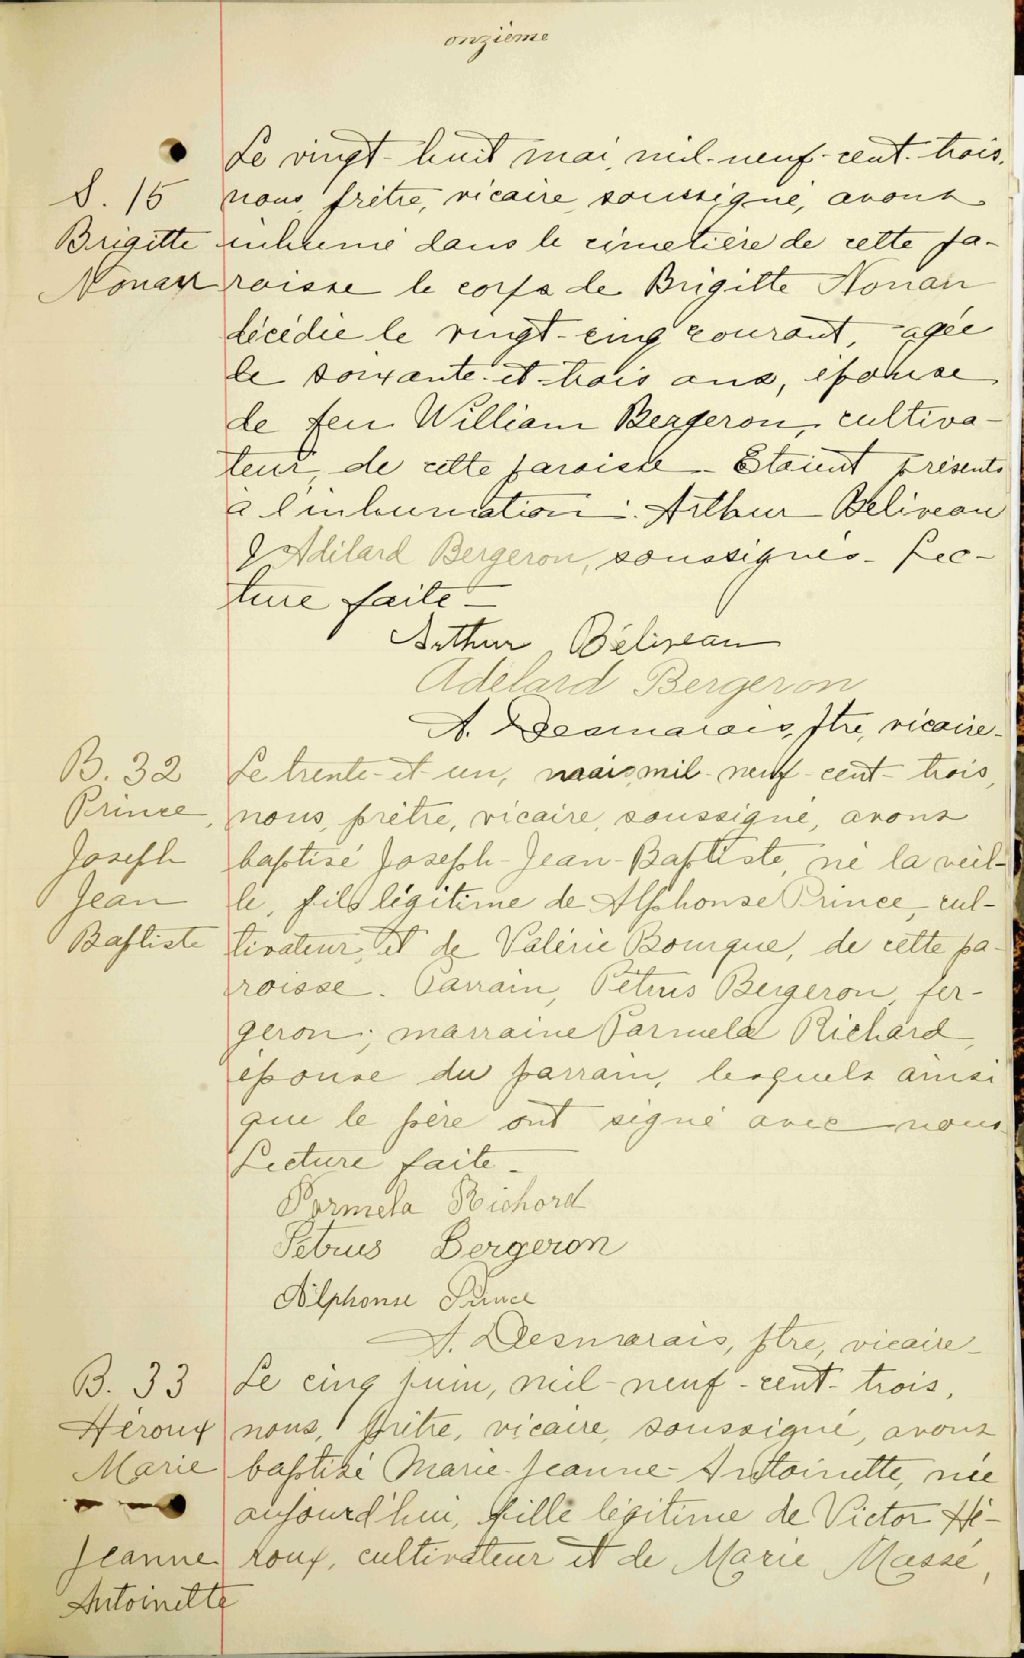 onzième
Le vingt-huit mai, mil-neuf-cent-trois,
S. 15 nous, prêtre, vicaire, soussigné, avons
Brigitte inhumé dans le cimetière de cette pa-
Nonan roisse le corps de Brigitte Nonan
décédée le vingt-cinq courant, agée
de soixante-et-trois ans, épouse
de feu William Bergeron, cultiva-
teur, de cette paroisse - Etaient présents
à l'inhumation : Arthur Béliveau
& Adélard Bergeron, soussignés - Lec-
ture faite -
Arthur Béliveau
Adélard Bergeron
A. Desmarais, ptre, vicaire -
B. 32 Le trente-et-un, mai, mil-neuf-cent-trois,
Prince, nous, prêtre, vicaire, soussigné, avons
Joseph baptisé Joseph-Jean-Baptiste, né la veil-
Jean le, fils légitime de Alphonse Prince, cul-
Baptiste tivateur, et de Valérie Bourque, de cette pa-
roisse. Parrain, Pétrus Bergeron, for-
geron; marraine Parmela Richard,
épouse du parrain, lesquels ainsi
que le père ont signé avec nous.
Lecture faite -
Parmela Richard
Pétrus Bergeron
Alphonse Prince
A. Desmarais, ptre, vicaire -
B. 33 Le cinq juin, mil-neuf-cent-trois,
Héroux nous, prêtre, vicaire, soussigné, avons
Marie baptisé Marie-Jeanne-Antoinette, née
aujourd'hui, fille légitime de Victor Hé-
Jeanne roux, cultivateur et de Marie Massé,
Antoinette